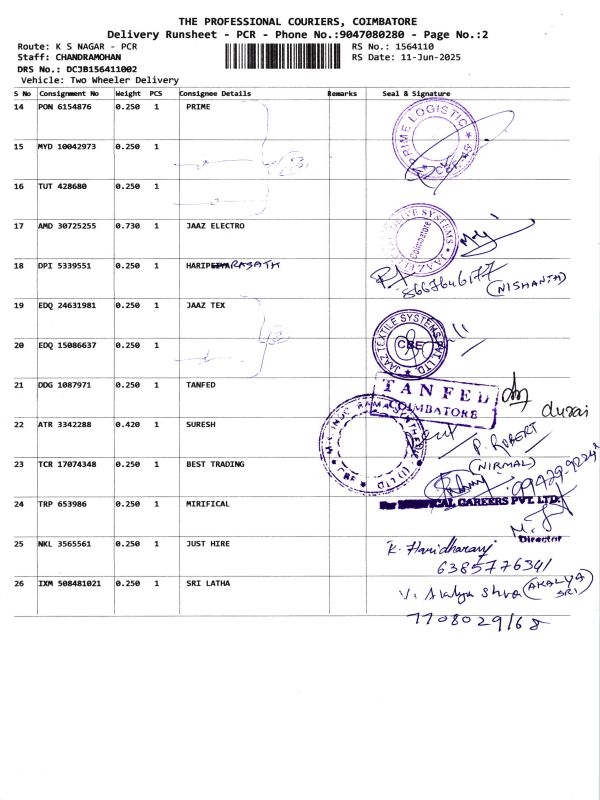 THE PROFESSIONAL COURIERS, COIMBATORE
Delivery Runsheet - PCR - Phone No.:9047080280 - Page No.:2
Route: K S NAGAR - PCR
RS No.: 1564110
Staff: CHANDRAMOHAN
RS Date: 11-Jun-2025
DRS No.: DCJB156411002
Vehicle: Two Wheeler Delivery
S No Consignment No Weight PCS Consignee Details Remarks Seal & Signature
14 PON 6154876 0.250 1 PRIME
PRIME LOGISTIC
CBE
15 MYD 10042973 0.250 1
16 TUT 428680 0.250 1
17 AMD 30725255 0.730 1 JAAZ ELECTRO
DRIVE SYSTEMS
Coimbatore
JAAZ
18 DPI 5339551 0.250 1 HARI
8667646177
(NISHANTH)
19 EDQ 24631981 0.250 1 JAAZ TEX
JAAZ TEXTILE SYSTEMS PVT. LTD.
CBE
20 EDQ 15086637 0.250 1
21 DDG 1087971 0.250 1 TANFED
TANFED
COIMBATORE
durai
22 ATR 3342288 0.420 1 SURESH
P. ROBERT
23 TCR 17074348 0.250 1 BEST TRADING
(NIRMAL)
24 TRP 653986 0.250 1 MIRIFICAL
For MIRIFICAL CAREERS PVT. LTD.
Director
25 NKL 3565561 0.250 1 JUST HIRE
K. Haridharanj
6385776341
26 IXM 508481021 0.250 1 SRI LATHA
(AKALYA SRI)
7708029168